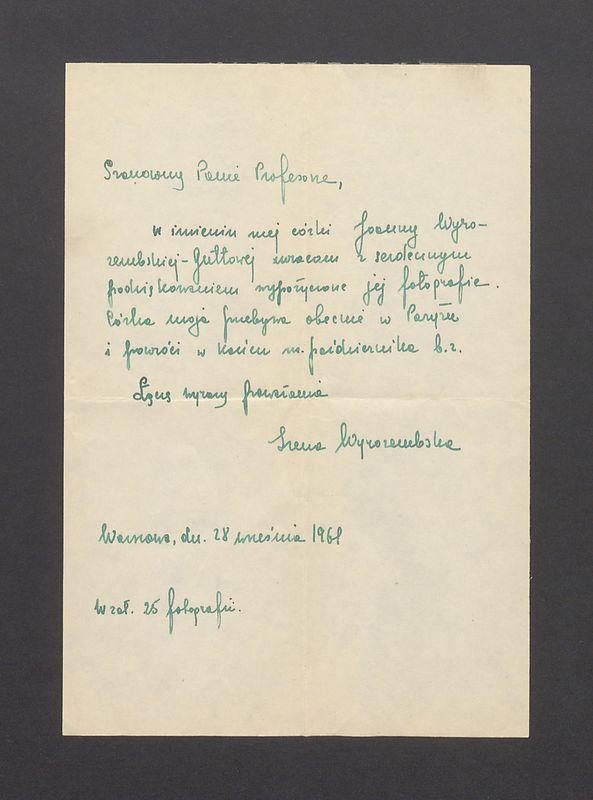 Szanowny Panie Profesorze,
W imieniu mej córki Joanny Wyro-
zembskiej-Guttowej zwracam z serdecznym
podziękowaniem wypożyczone jej fotografie.
Córka moja przebywa obecnie w Paryżu
i powróci w końcu m. października b.r.
Łączę wyrazy poważania
Irena Wyrozembska
Warszawa, dn. 28 września 1961
W zał. 25 fotografii.